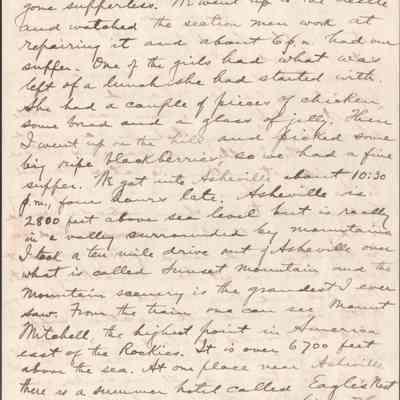 gone supperless. We went up to the
and watched the section men work at
repairing it and about 6 p.m. had our
supper. One of the girls had what was
left of a lunch she had started with.
She had a couple of pieces of chicken,
some bread and a glass of jelly. Then
I went up on the hill and picked some
big ripe blackberries, so we had a fine
supper. We got into Asheville about 10:30
p.m., four hours late. Asheville is
2800 feet above sea level but is really
in a valley surrounded by mountains
I took a ten mile drive out of Asheville over
what is called Sunset Mountain and the
mountain scenery is the grandest I ever
saw. From the train one can see Mount
Mitchell, the highest point in America
east of the Rockies. It is over 6700 feet
above the sea. At one place near Asheville
there is a summer hotel called Eagle's Nest